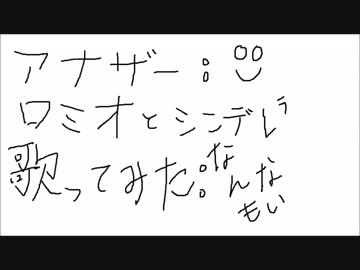 アナザー:
ロミオとシンデレラ
歌ってみた:なんなもい